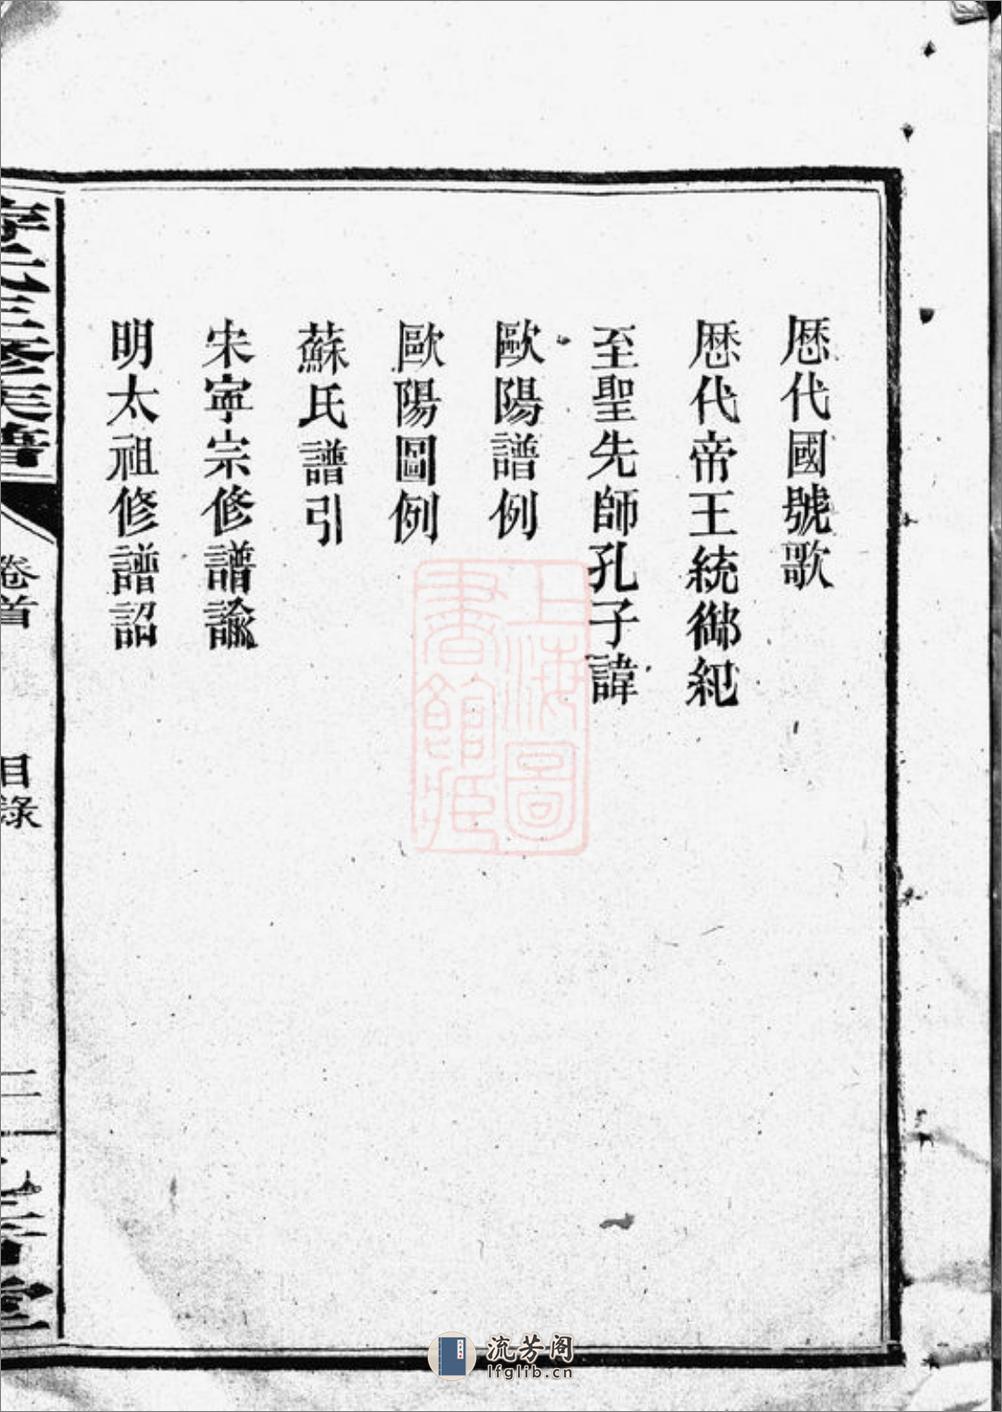 歷代國號歌
歷代帝王統御紀
至聖先師孔子諱
歐陽譜例
歐陽圖例
蘇氏譜引
宋寧宗修譜諭
明太祖修譜詔
三修族譜
卷首
目錄
二
堂
上海圖書館藏
流芳阁
lfglib.cn